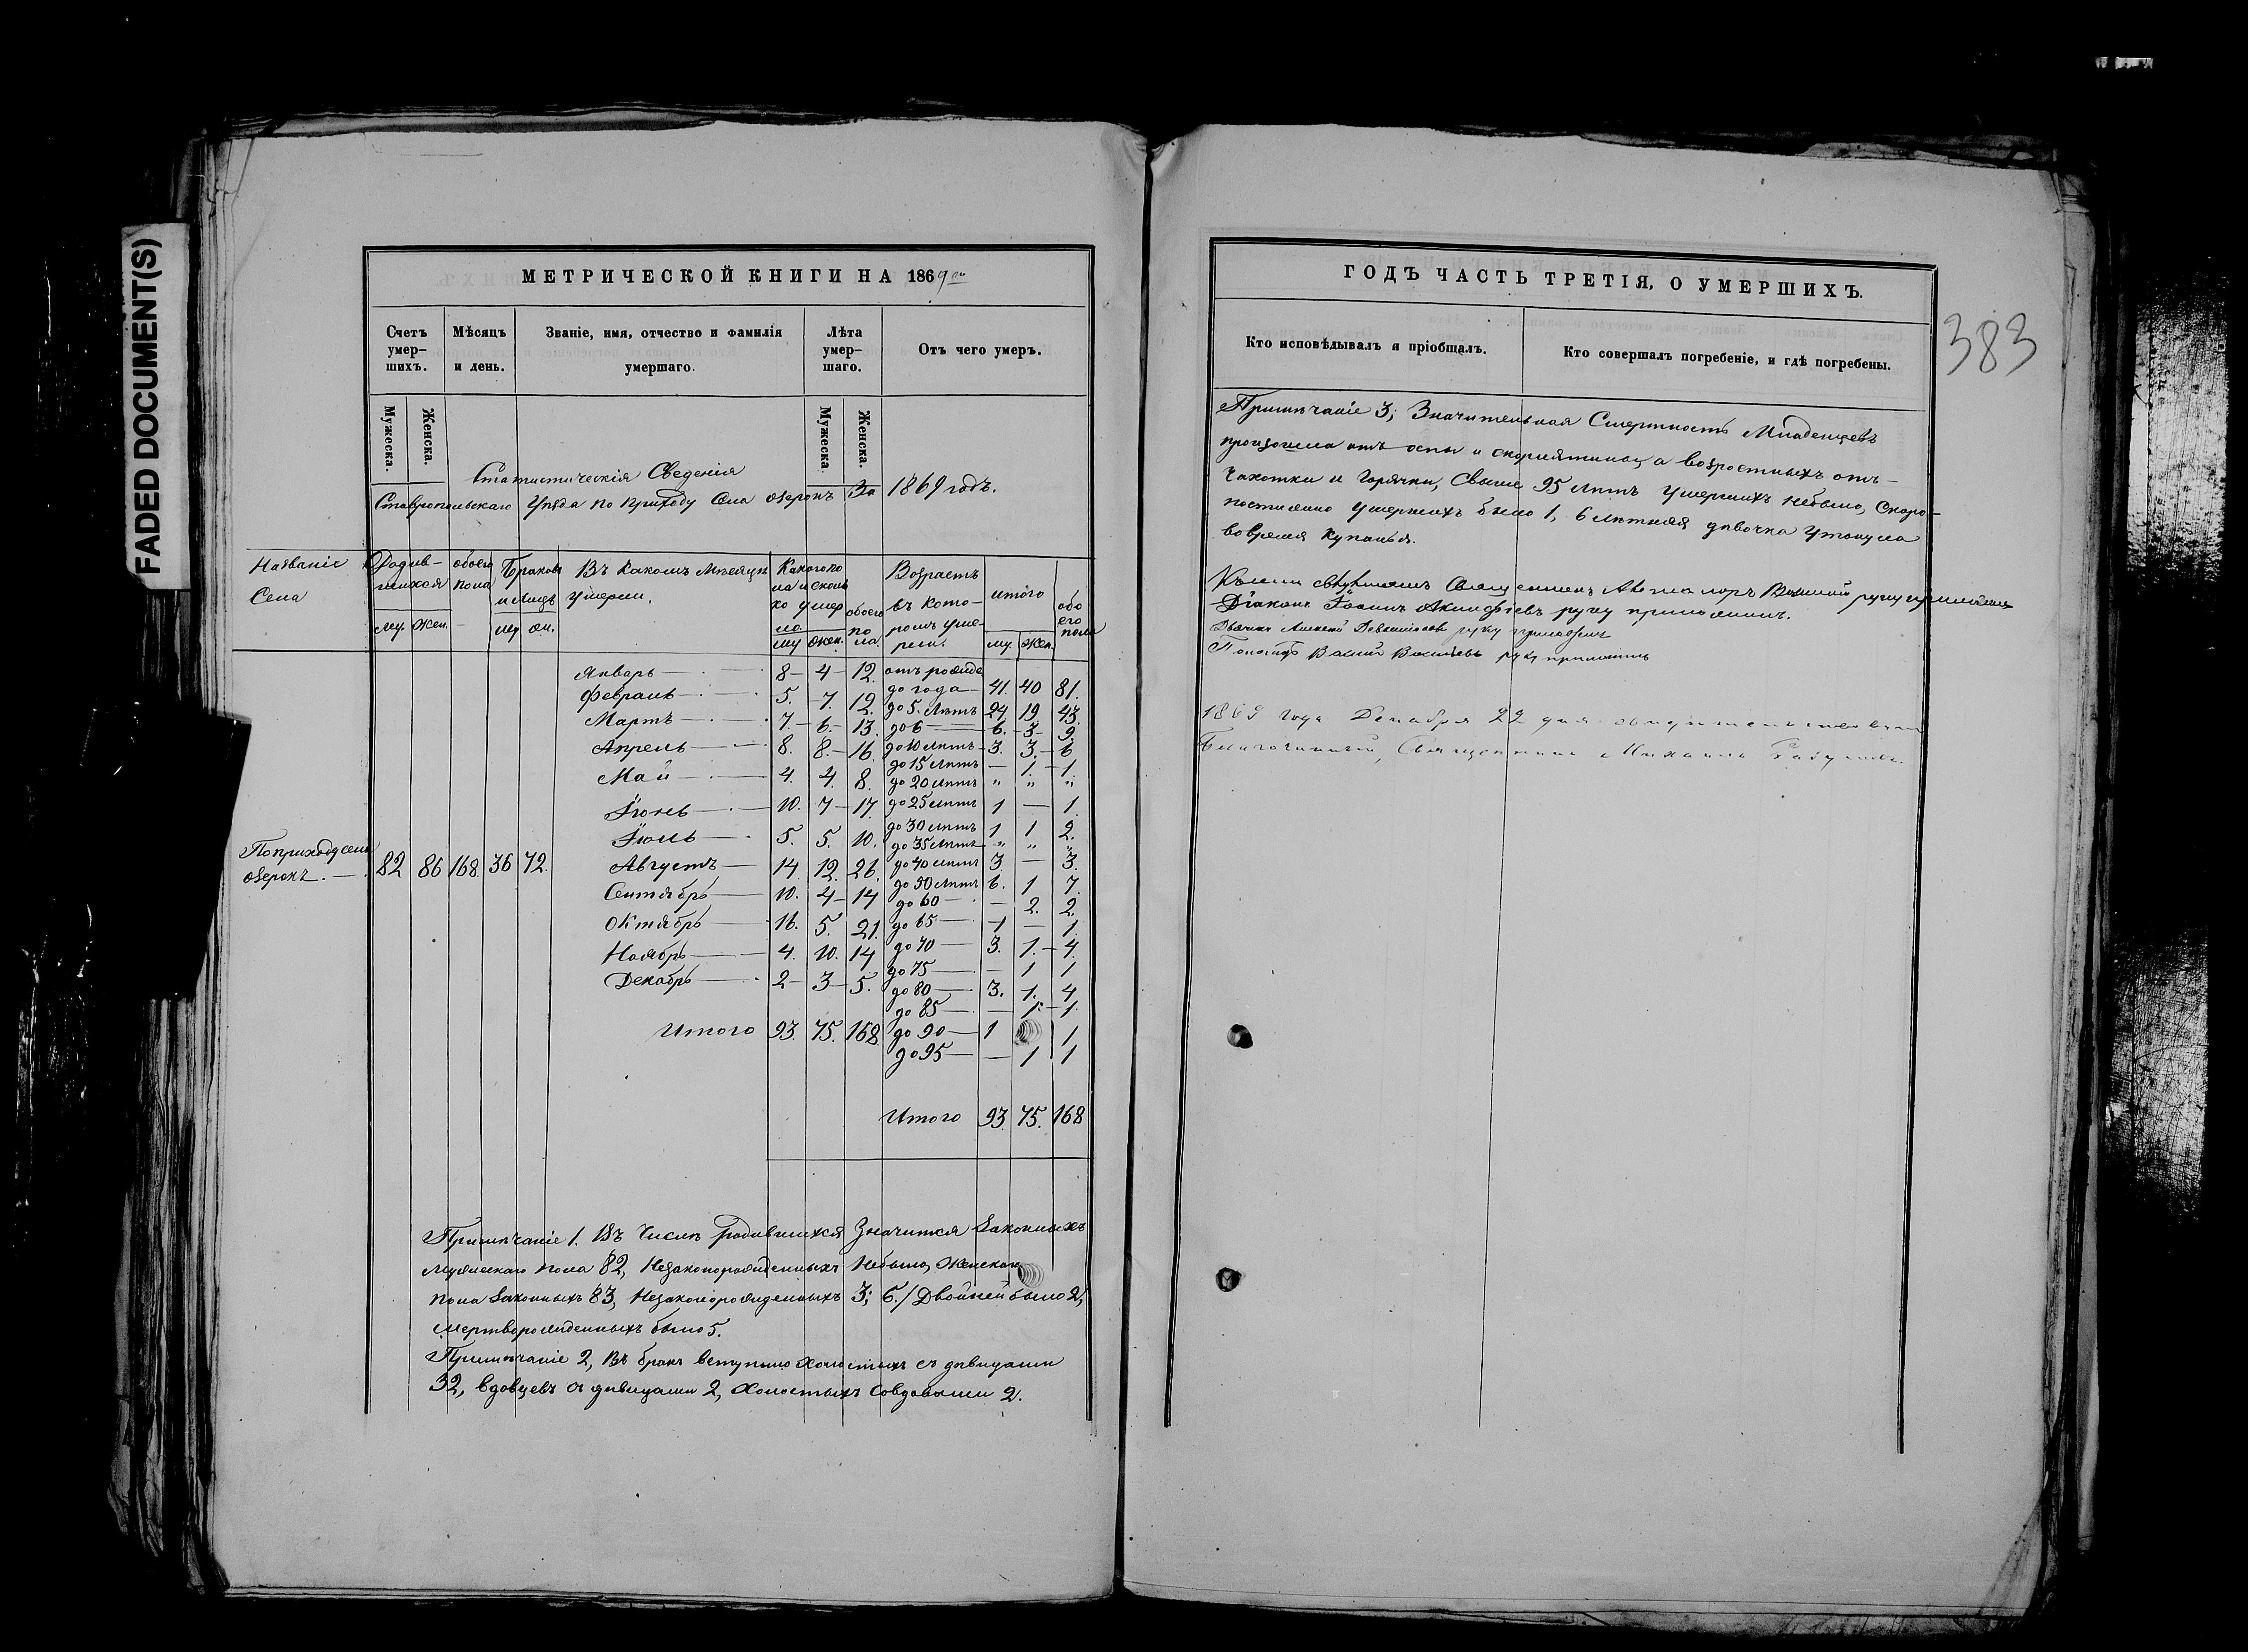 FADED DOCUMENT(S)
МЕТРИЧЕСКОЙ КНИГИ НА 1869
Счетъ умер–шихъ. Мѣсяцъ и день. Званіе, имя, отчество и фамилія умершаго. Лѣта умер–шаго. Отъ чего умеръ.
Мужеска. Женска. Мужеска. Женска.
Статистическія Сведенія
Ставропольскаго Уѣзда по приходу Села Озерокъ За 1869 годъ.
Названіе Села Родив–шихся обоего пола Браковъ и лицъ Въ какомъ мѣсяцѣ умерли. Какого по ла и сколь ко умер ло обоего по ла. Возрастъ въ кото–ромъ уме–рли. итого обо его пола
му. жен. му жен. му. жен.
Январь 8 4 12. отъ рожде до года 41. 40 81.
Февраль 5. 7. 12. до 5. лѣтъ 24 19. 43.
Мартъ 7 6 13. до 6 6. 3 9.
Апрель 8. 8. 16. до 10 лѣтъ 3. 3. 6.
до 15 лѣтъ — 1. 1.
Май 4. 4. 8. до 20 лѣтъ „ „ „
Іюнь 10. 7 17. до 25 лѣтъ 1 — 1.
до 30 лѣтъ 1 1 2.
Іюль 5. 5. 10. до 35 лѣтъ „ „ „
По приходу села Озерокъ. 82 86 168 36 72.
Августъ 14. 12. 26. до 40 лѣтъ 3. — 3.
Сентябрь 10. 4 14 до 50 лѣтъ 6. 1 7.
до 60 — 2. 2.
Октябрь 16. 5. 21. до 65 1 — 1.
Ноябрь 4. 10. 14 до 70 3. 1. 4.
до 75 — 1 1
Декабрь 2 3 5. до 80 3. 1. 4
до 85 — 1. 1.
Итого 93. 75. 168 до 90 1 1
до 95 — 1 1
Итого 93. 75. 168
Примѣчаніе 1. Въ Числѣ родившихся Значится Законныхъ
мужескаго пола 82, Незаконорожденныхъ Небыло, Женскаго
пола Законныхъ 83, Незаконорожденныхъ 3; б./ Двойней было 2,
мертворожденныхъ было 5.
Примѣчаніе 2, Въ бракъ вступило холостыхъ съ дѣвицами
32, вдовцевъ съ дѣвицами 2, холостыхъ совдовами 2.
ГОДЪ ЧАСТЬ ТРЕТІЯ, О УМЕРШИХЪ.
383
Кто исповѣдывалъ и пріобщалъ. Кто совершалъ погребеніе, и гдѣ погребены.
Примѣчаніе 3; Значительная Смертность Младенцевъ
произошла отъ оспы и скорлятины, а возростныхъ отъ
Чахотки и Горячки, Свыше 95 лѣтъ умершихъ небыло, Скоро–
постижно умершихъ было 1, 6 лѣтняя дѣвочка утонула
вовремя купанья.
Священник руку приложилъ
Діаконъ Іоаннъ руку приложилъ.
Дьячекъ Алексей руку приложилъ
Василій Васильевъ руку приложилъ
1869 года Декабря 22 дня
Благочинный, Священникъ Михаилъ